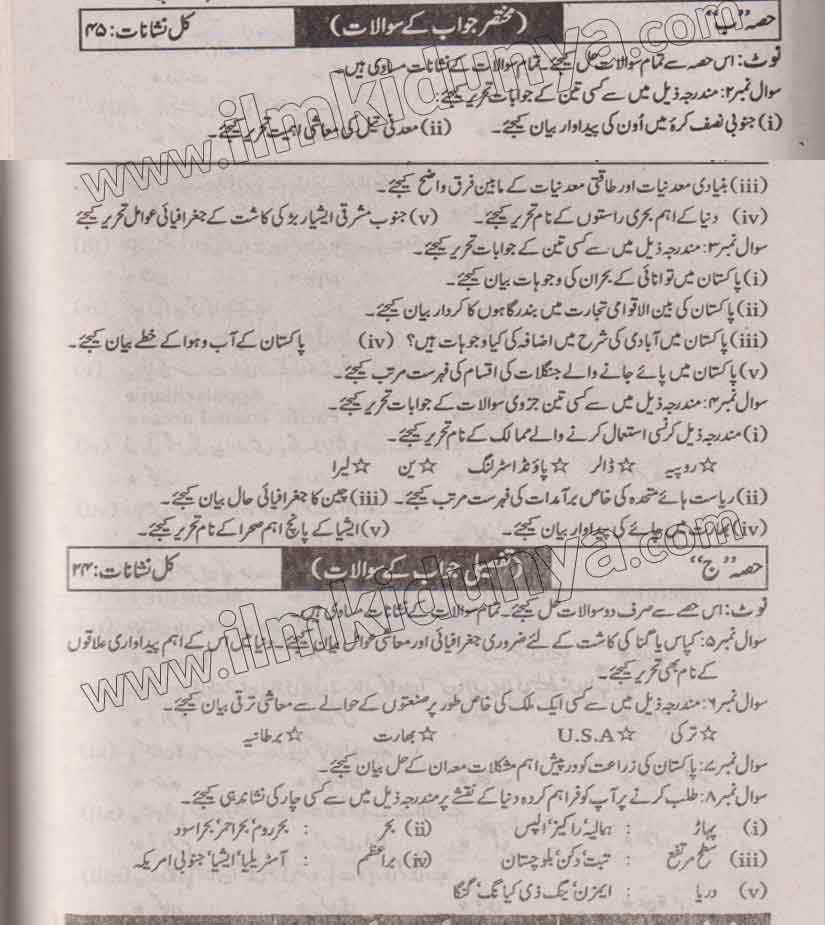 حصہ "ب" (مختصر جواب کے سوالات) کل نشانات: ۴۵
نوٹ: اس حصہ سے تمام سوالات حل کیجئے۔ تمام سوالات کے نشانات مساوی ہیں۔
سوال نمبر۲: مندرجہ ذیل میں سے کسی تین کے جوابات تحریر کیجئے:
(i) جنوبی نصف کرۂ میں اُون کی پیداوار بیان کیجئے۔ (ii) معدنی تیل کی معاشی اہمیت تحریر کیجئے۔
(iii) بنیادی معدنیات اور طاقتی معدنیات کے مابین فرق واضح کیجئے۔
(iv) دنیا کے اہم بحری راستوں کے نام تحریر کیجئے۔ (v) جنوب مشرقی ایشیار بڑ کی کاشت کے جغرافیائی عوامل تحریر کیجئے
سوال نمبر۳: مندرجہ ذیل میں سے کسی تین کے جوابات تحریر کیجئے:
(i) پاکستان میں توانائی کے بحران کی وجوہات بیان کیجئے۔
(ii) پاکستان کی بین الاقوامی تجارت میں بندرگاہوں کا کردار بیان کیجئے۔
(iii) پاکستان میں آبادی کی شرح میں اضافہ کی کیا وجوہات ہیں؟ (iv) پاکستان کے آب و ہوا کے خطے بیان کیجئے۔
(v) پاکستان میں پائے جانے والے جنگلات کی اقسام کی فہرست مرتب کیجئے۔
سوال نمبر۴: مندرجہ ذیل میں سے کسی تین جزوی سوالات کے جوابات تحریر کیجئے۔
(i) مندرجہ ذیل کرنسی استعمال کرنے والے ممالک کے نام تحریر کیجئے:
☆ روپیہ ☆ ڈالر ☆ پاؤنڈ اسٹرلنگ ☆ ین ☆ لیرا
(ii) ریاست ہائے متحدہ کی خاص برآمدات کی فہرست مرتب کیجئے۔ (iii) چین کا جغرافیائی حال بیان کیجئے۔
(iv) بھارت میں چائے کی پیداوار بیان کیجئے۔ (v) ایشیا کے پانچ اہم صحرا کے نام تحریر کیجئے۔
حصہ "ج" (تفصیلی جواب کے سوالات) کل نشانات: ۳۴
نوٹ: اس حصے سے صرف دو سوالات حل کیجئے۔ تمام سوالات کے نشانات مساوی ہیں۔
سوال نمبر۵: کپاس یا گنا کی کاشت کے لئے ضروری جغرافیائی اور معاشی عوامل بیان کیجئے۔ دنیا میں اس کے اہم پیداواری علاقوں
کے نام بھی تحریر کیجئے۔
سوال نمبر۶: مندرجہ ذیل میں سے کسی ایک ملک کی خاص طور پر صنعتوں کے حوالے سے معاشی ترقی بیان کیجئے۔
☆ ترکی ☆ U.S.A ☆ بھارت ☆ برطانیہ
سوال نمبر۷: پاکستان کی زراعت کو درپیش اہم مشکلات معہ ان کے حل بیان کیجئے۔
سوال نمبر۸: طلب کرنے پر آپ کو فراہم کردہ دنیا کے نقشے پر مندرجہ ذیل میں سے کسی چار کی نشاندہی کیجئے۔
(i) پہاڑ : ہمالیہ' راکیز' الپس (ii) بحر : بحر روم' بحر احمر' بحر اسود
(iii) سطح مرتفع : تبت' دکن' بلوچستان (iv) براعظم : آسٹریلیا' ایشیا' جنوبی امریکہ
(v) دریا : ایمزن' ینگ ذی کیانگ' گنگا
www.ilmkidunya.com
www.ilmkidunya.com